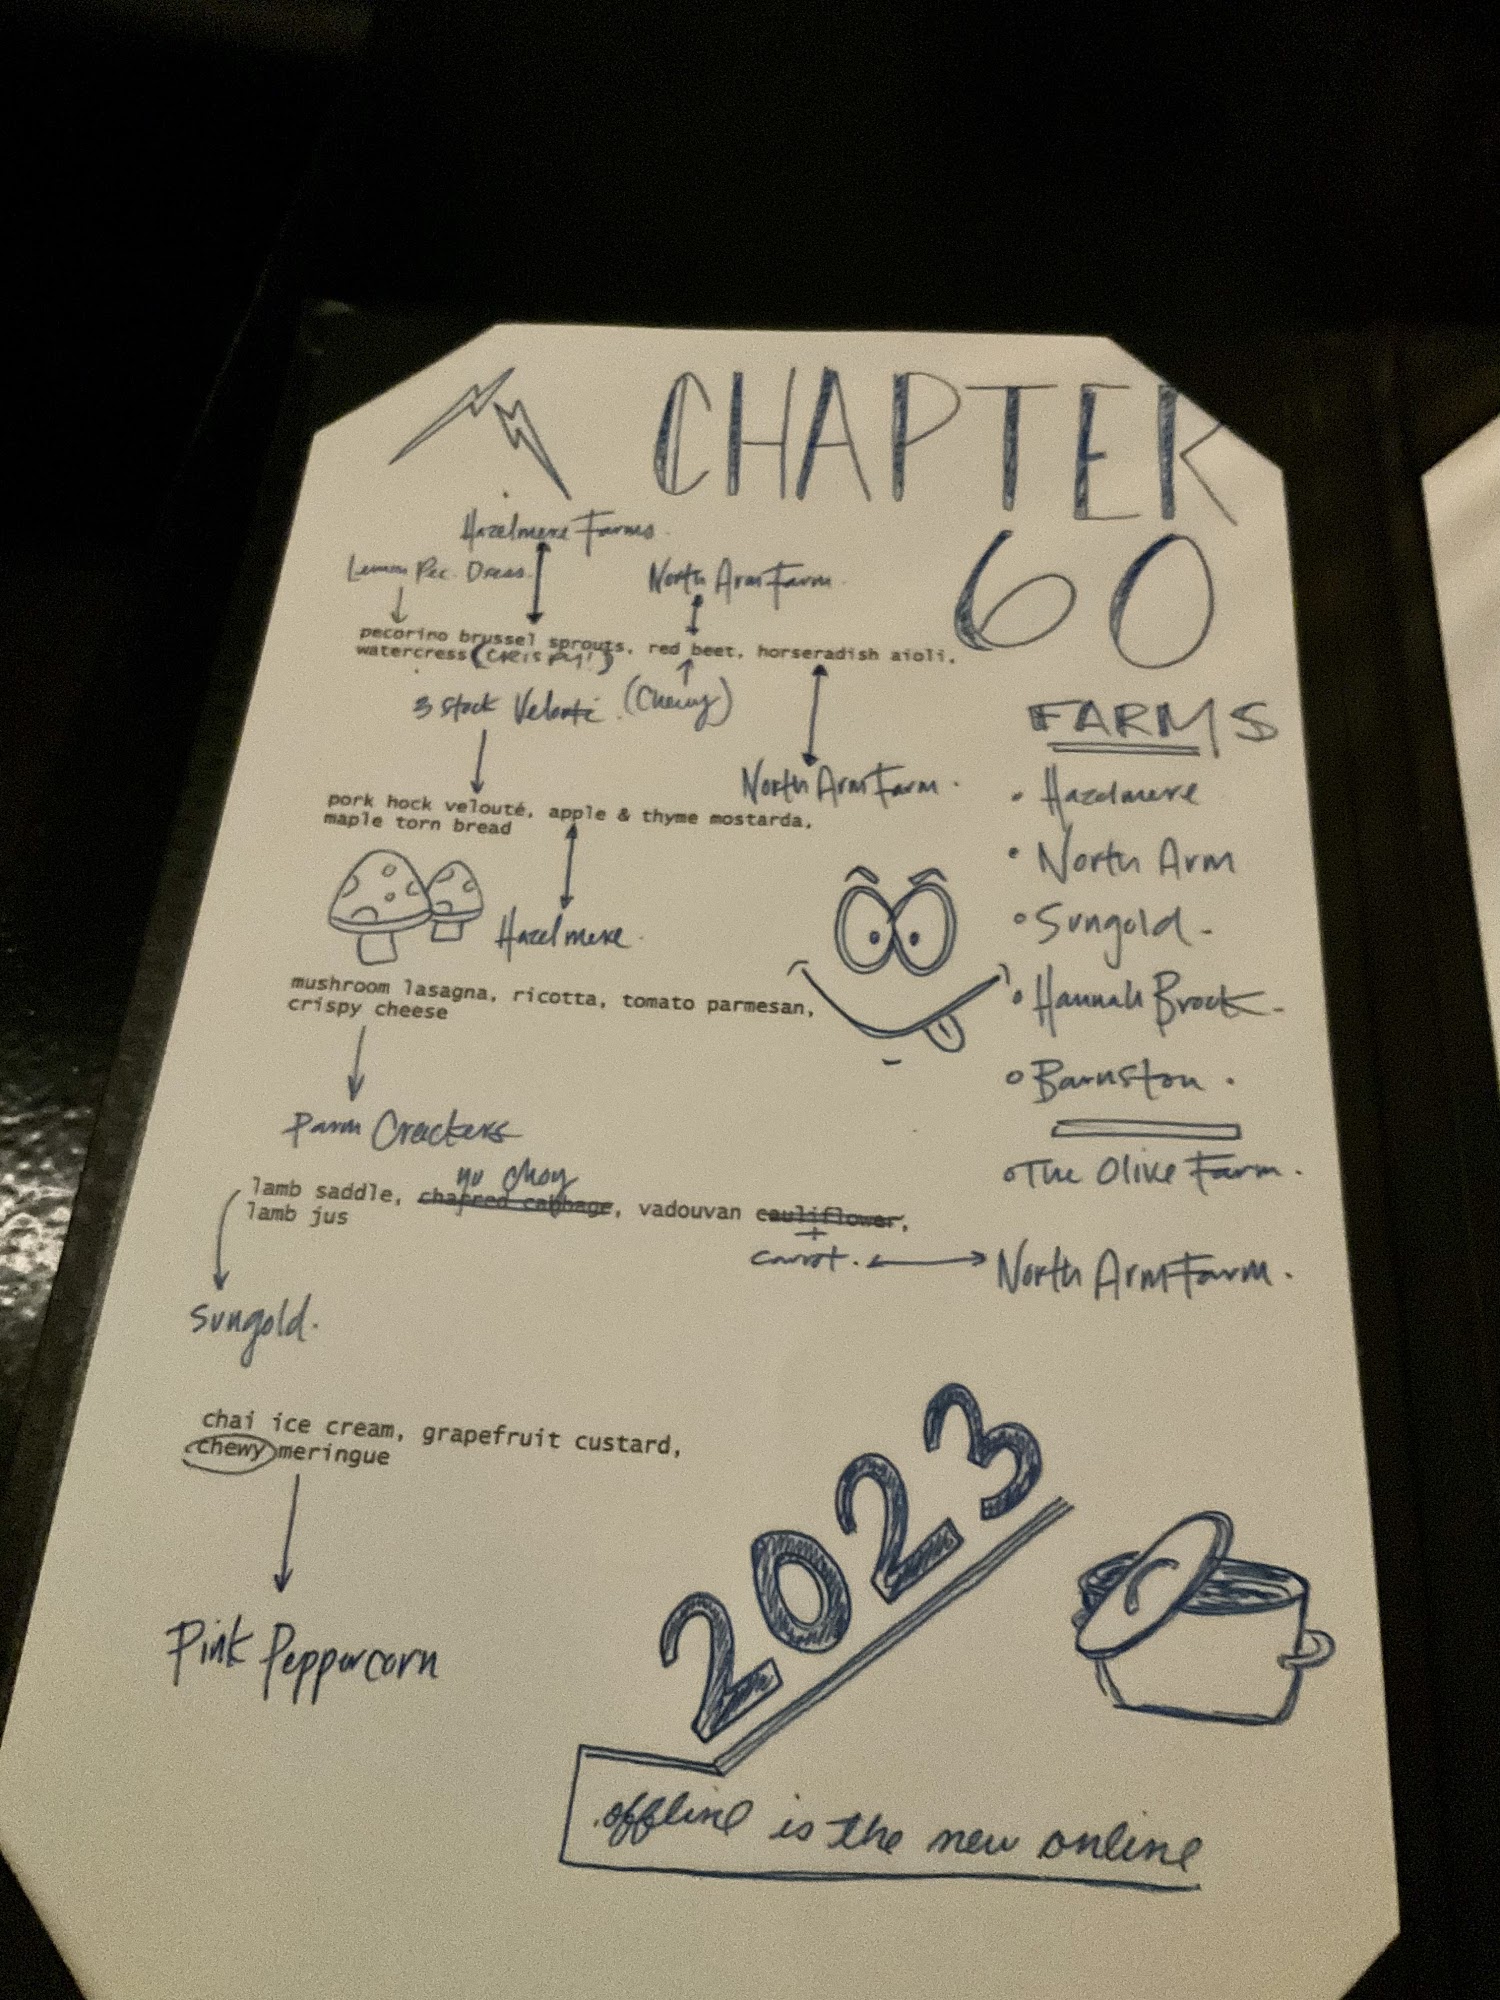 CHAPTER
60
Hazelmere Farms.
Lemon Pec. Dress.
North Arm Farm.
pecorino brussel sprouts, red beet, horseradish aioli,
watercress (CRISPY!)
(Chewy)
3 Stock Velouté.
North Arm Farm.
pork hock velouté, apple & thyme mostarda,
maple torn bread
Hazelmere.
mushroom lasagna, ricotta, tomato parmesan,
crispy cheese
Parm Crackers
yu choy
lamb saddle, charred cabbage, vadouvan cauliflower,
lamb jus
carrot.
North Arm Farm.
Sungold.
chai ice cream, grapefruit custard,
chewy meringue
Pink Peppercorn
FARMS
• Hazelmere
• North Arm
• Sungold.
• Hannah Brook.
• Barnston.
• The Olive Farm.
2023
offline is the new online